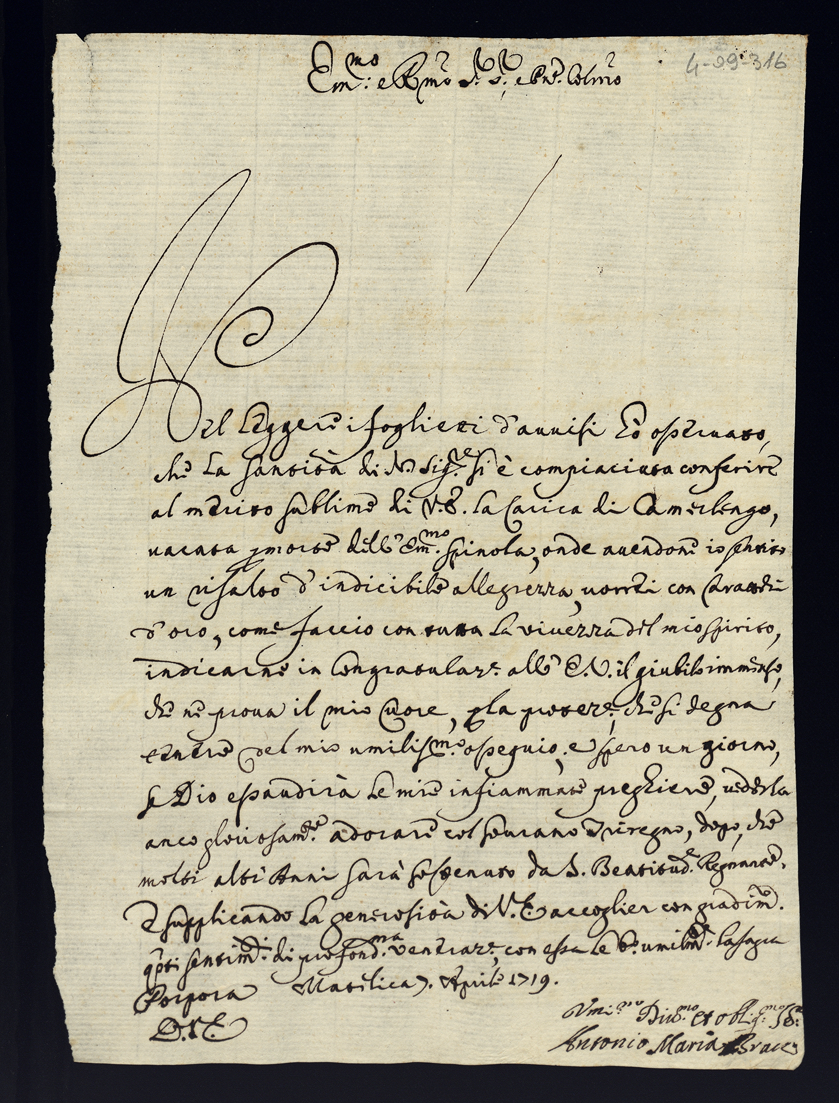 Em.mo e R.mo S.r, S.r, e P.ne Col.mo
4-29-316
Nel leggere i foglietti d'auuisi hò osseruato,
che la Santità di N. Sig.re si è compiaciuta conferire
al merito sublime di V.E. la Carica di Camerlengo,
uacata p morte dell' Em.mo Spinola, onde auendone io sentito
un risalto d'indicibile allegrezza, uorrei con Caratteri
d'oro, come faccio con tutta la viuezza del mio spirito,
indicarne in Congratulaz.e all' E.V. il giubilo immenso,
che ne proua il mio Cuore, p la protez.e, che si degna
tenere del mio umiliss.mo ossequio; e spero un giorno,
se Dio esaudirà le mie infiammate preghiere, uederla
anco gloriosam.te adorare col sourano Triregno, dopo, che
molti altri Anni sarà sostenuto da S. Beatitud.e Regnante.
E supplicando la generosità di V.E. accoglier con gradim.to
q.sti sentim.ti di profond.ma ueneraz.e, con essa le b.o umilm.te la sagra
Porpora Matelica 7. Aprile 1719.
D.V.E.
Vmi.mo Diu.mo et obl.g.mo Se.re
Antonio Maria